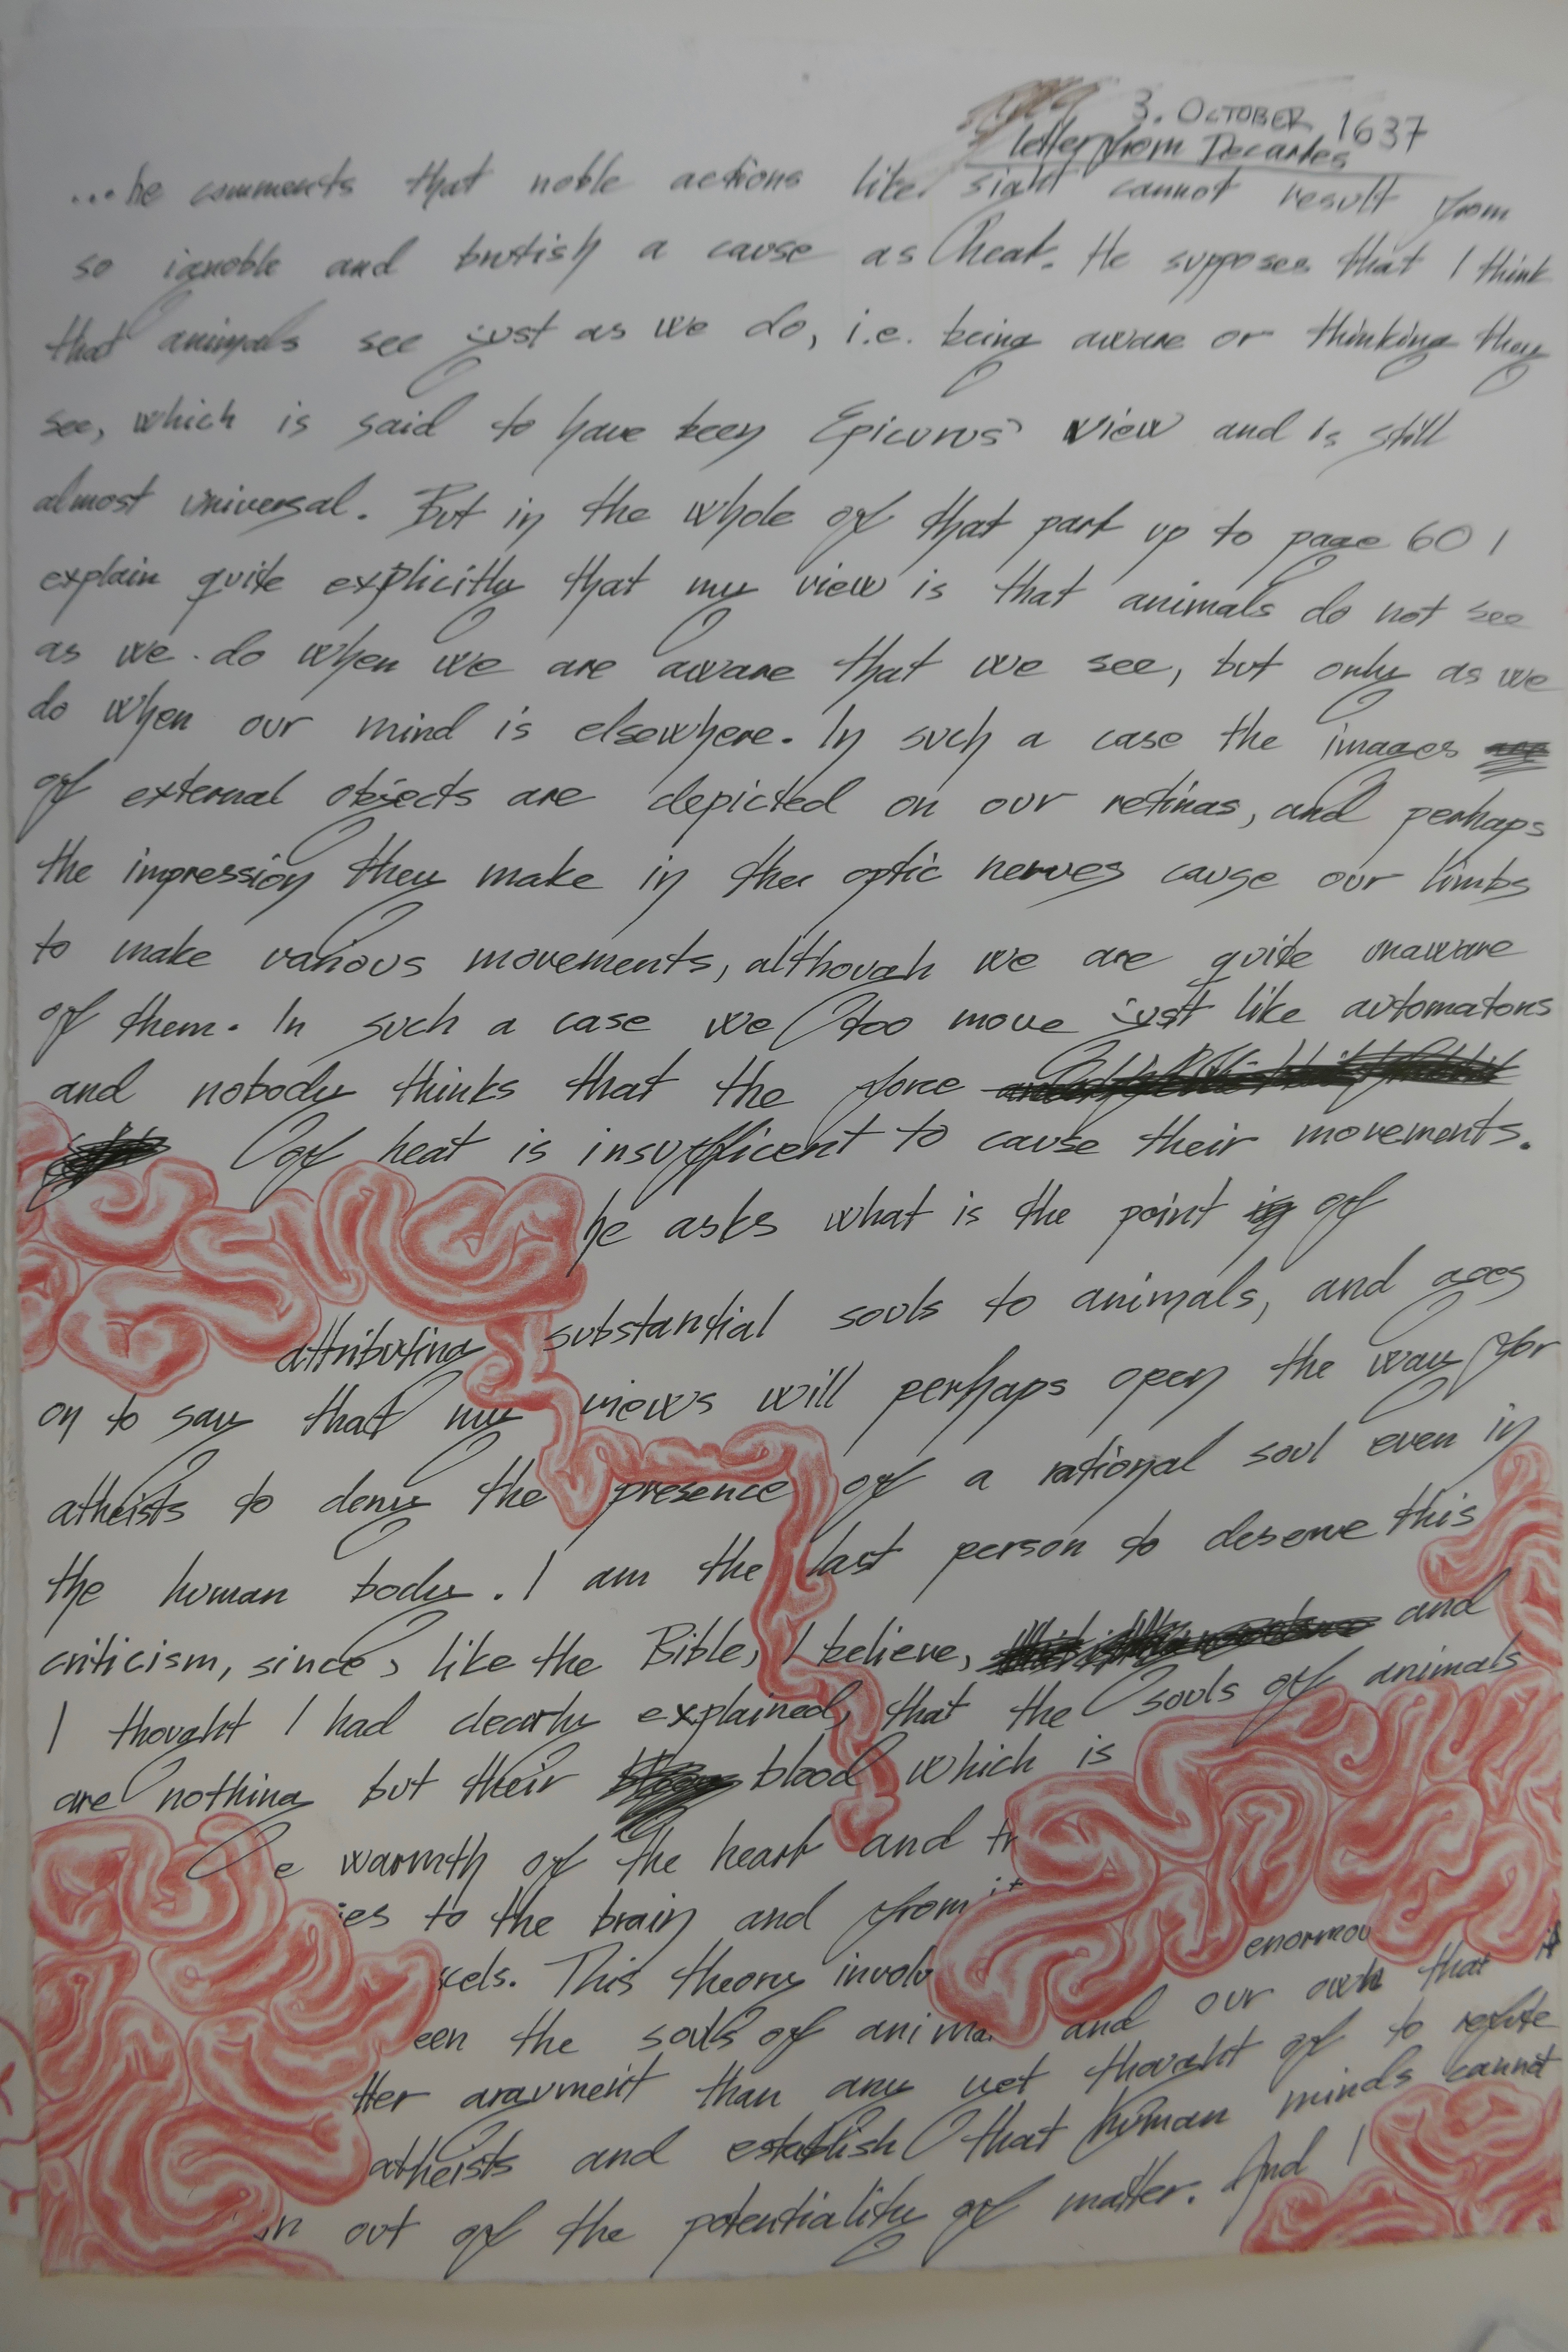 3. OCTOBER 1637
letter from Decartes
...he comments that noble actions like sight cannot result from
so ignoble and brutish a cause as heat. He supposes that I think
that animals see just as we do, i.e. being aware or thinking they
see, which is said to have been Epicurus' view and is still
almost universal. But in the whole of that part up to page 60 I
explain quite explicitly that my view is that animals do not see
as we do when we are aware that we see, but only as we
do when our mind is elsewhere. In such a case the images
of external objects are depicted on our retinas, and perhaps
the impression they make in the optic nerves cause our limbs
to make various movements, although we are quite unaware
of them. In such a case we too move just like automatons
and nobody thinks that the force
of heat is insufficent to cause their movements.
he asks what is the point of
attributing substantial souls to animals, and goes
on to say that my views will perhaps open the way for
atheists to deny the presence of a rational soul even in
the human body. I am the last person to deserve this
criticism, since, like the Bible, I believe, and
I thought I had clearly explained, that the souls of animals
are nothing but their blood which is
e warmth of the heart and tr
ies to the brain and from it
scels. This theory involv enormou
een the souls of anima and our own that it
tter argument than any yet thought of to refute
atheists and establish that human minds cannot
n out of the potentiality of matter. And I